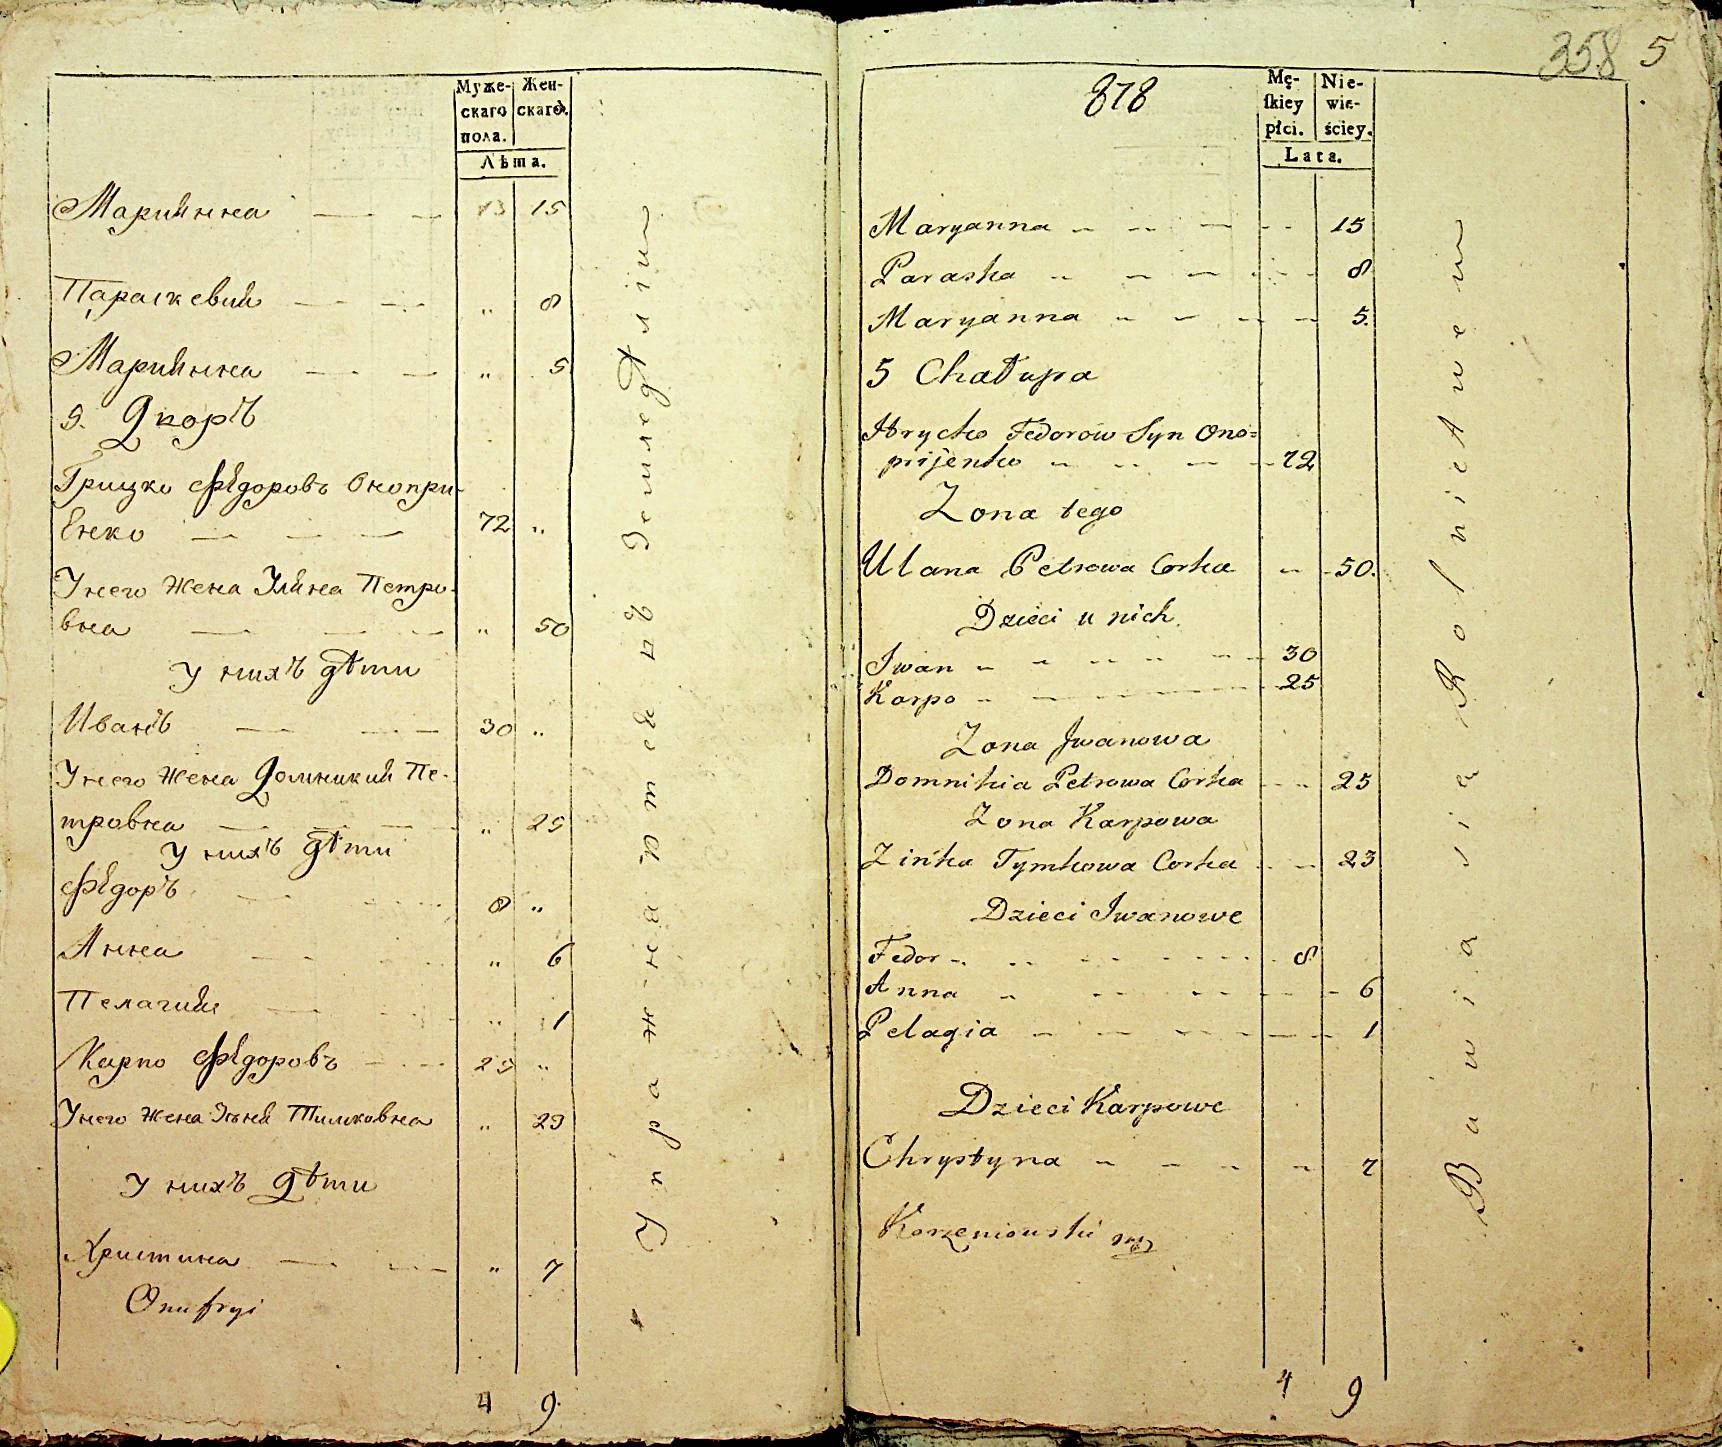 Муже-
скаго
пола.
Жен-
скаго.
Лѣта.
Марианна — — 13 15
Параскевия — — „ 8
Марианна — — „ 5
5. Дворъ
Грицко Ѳедоровъ Онопри-
енко — — — 72 „
У него жена Улияна Петро-
вна — — — „ 50
У нихъ дѣти
Иванъ — — 30 „
У него жена Домникия Пе-
тровна — — — „ 25
У нихъ дѣти
Ѳедоръ — — 8 „
Анна — — „ 6
Пелагия — — „ 1
Карпо Ѳедоровъ — — 25 „
У него жена Тимковна „ 23
У нихъ дѣти
Христина — — „ 7
Onufryi
4 9.
Упражняется въ земледѣлiи
358 5
878
Mę-
skiey
płci.
Nie-
wie-
ściey.
Lata.
Maryanna — — — — 15
Paraska — — — — 8
Maryanna — — — — 5.
5 Chałupa
Hryćko Fedorow Syn Ono=
prijenko — — — 72
Zona tego
Ulana Petrowa Corka — 50.
Dzieci u nich.
Iwan — — — — 30
Karpo — — — — 25
Zona Iwanowa
Domnikia Petrowa Corka — — 25
Zona Karpowa
Zińka Tymkowa Corka — — 23
Dzieci Iwanowe
Fedor — — — — 8
Anna — — — — 6
Pelagia — — — — 1
Dzieci Karpowe
Chrystyna — — — — 7
Korzeniowski
4 9
Bawia sia Rolnictwem